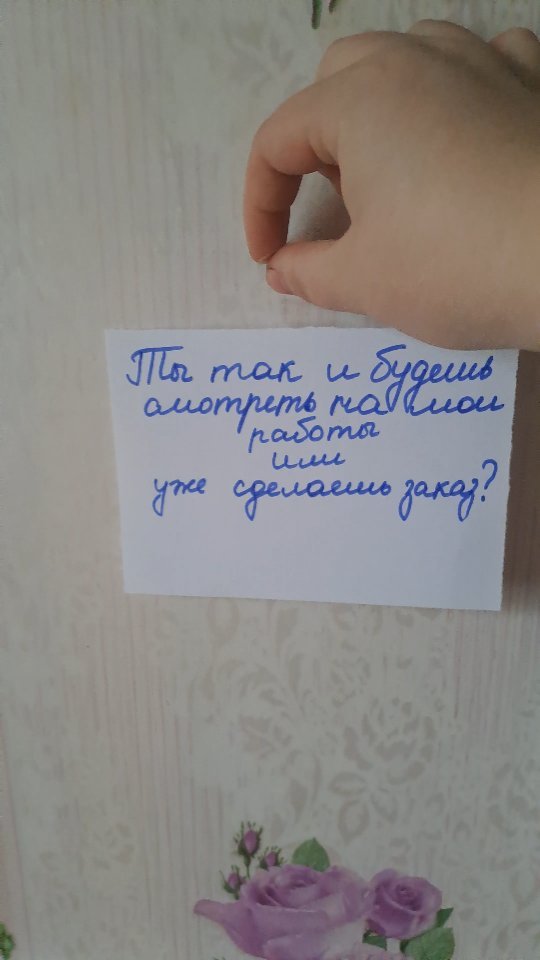 Ты так и будешь
смотреть на мои
работы
или
уже сделаешь заказ?